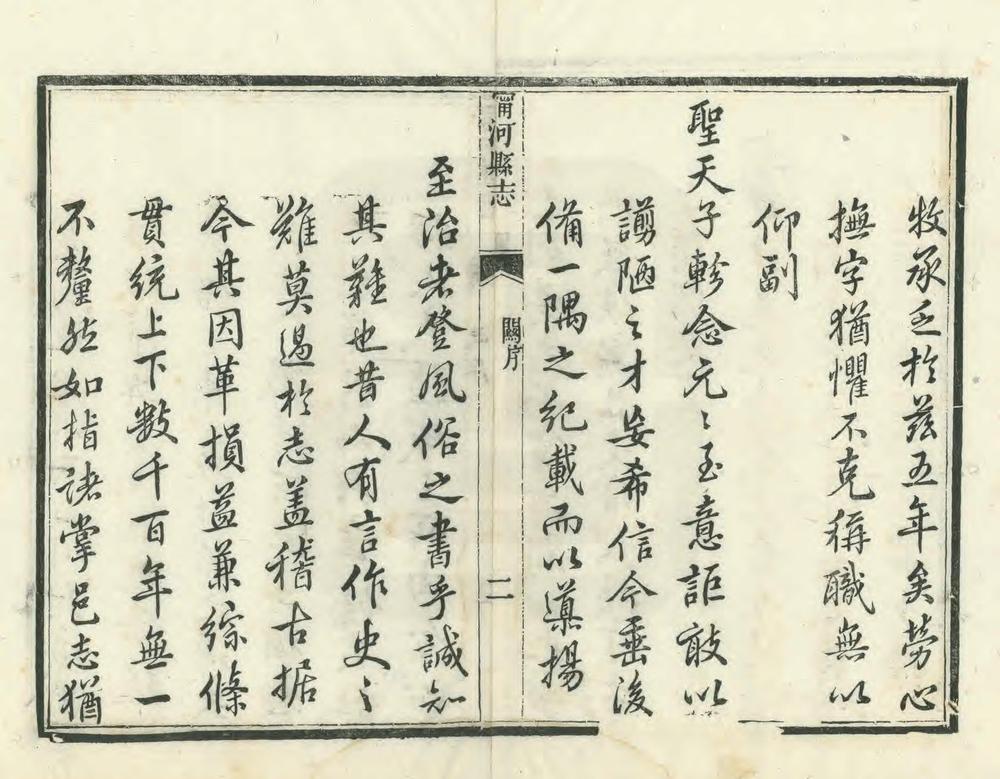 牧承乏於茲五年矣勞心
撫字猶懼不克稱職無以
仰副
聖天子軫念元〻至意詎敢以
謭陋之才妄希信今垂後
備一隅之紀載而以導揚
甯河縣志
關序
二
至治者登風俗之書乎誠知
其難也昔人有言作史之
難莫過於志盖稽古据
今其因革損益兼綜條
貫統上下數千百年無一
不釐然如指諸掌邑志猶